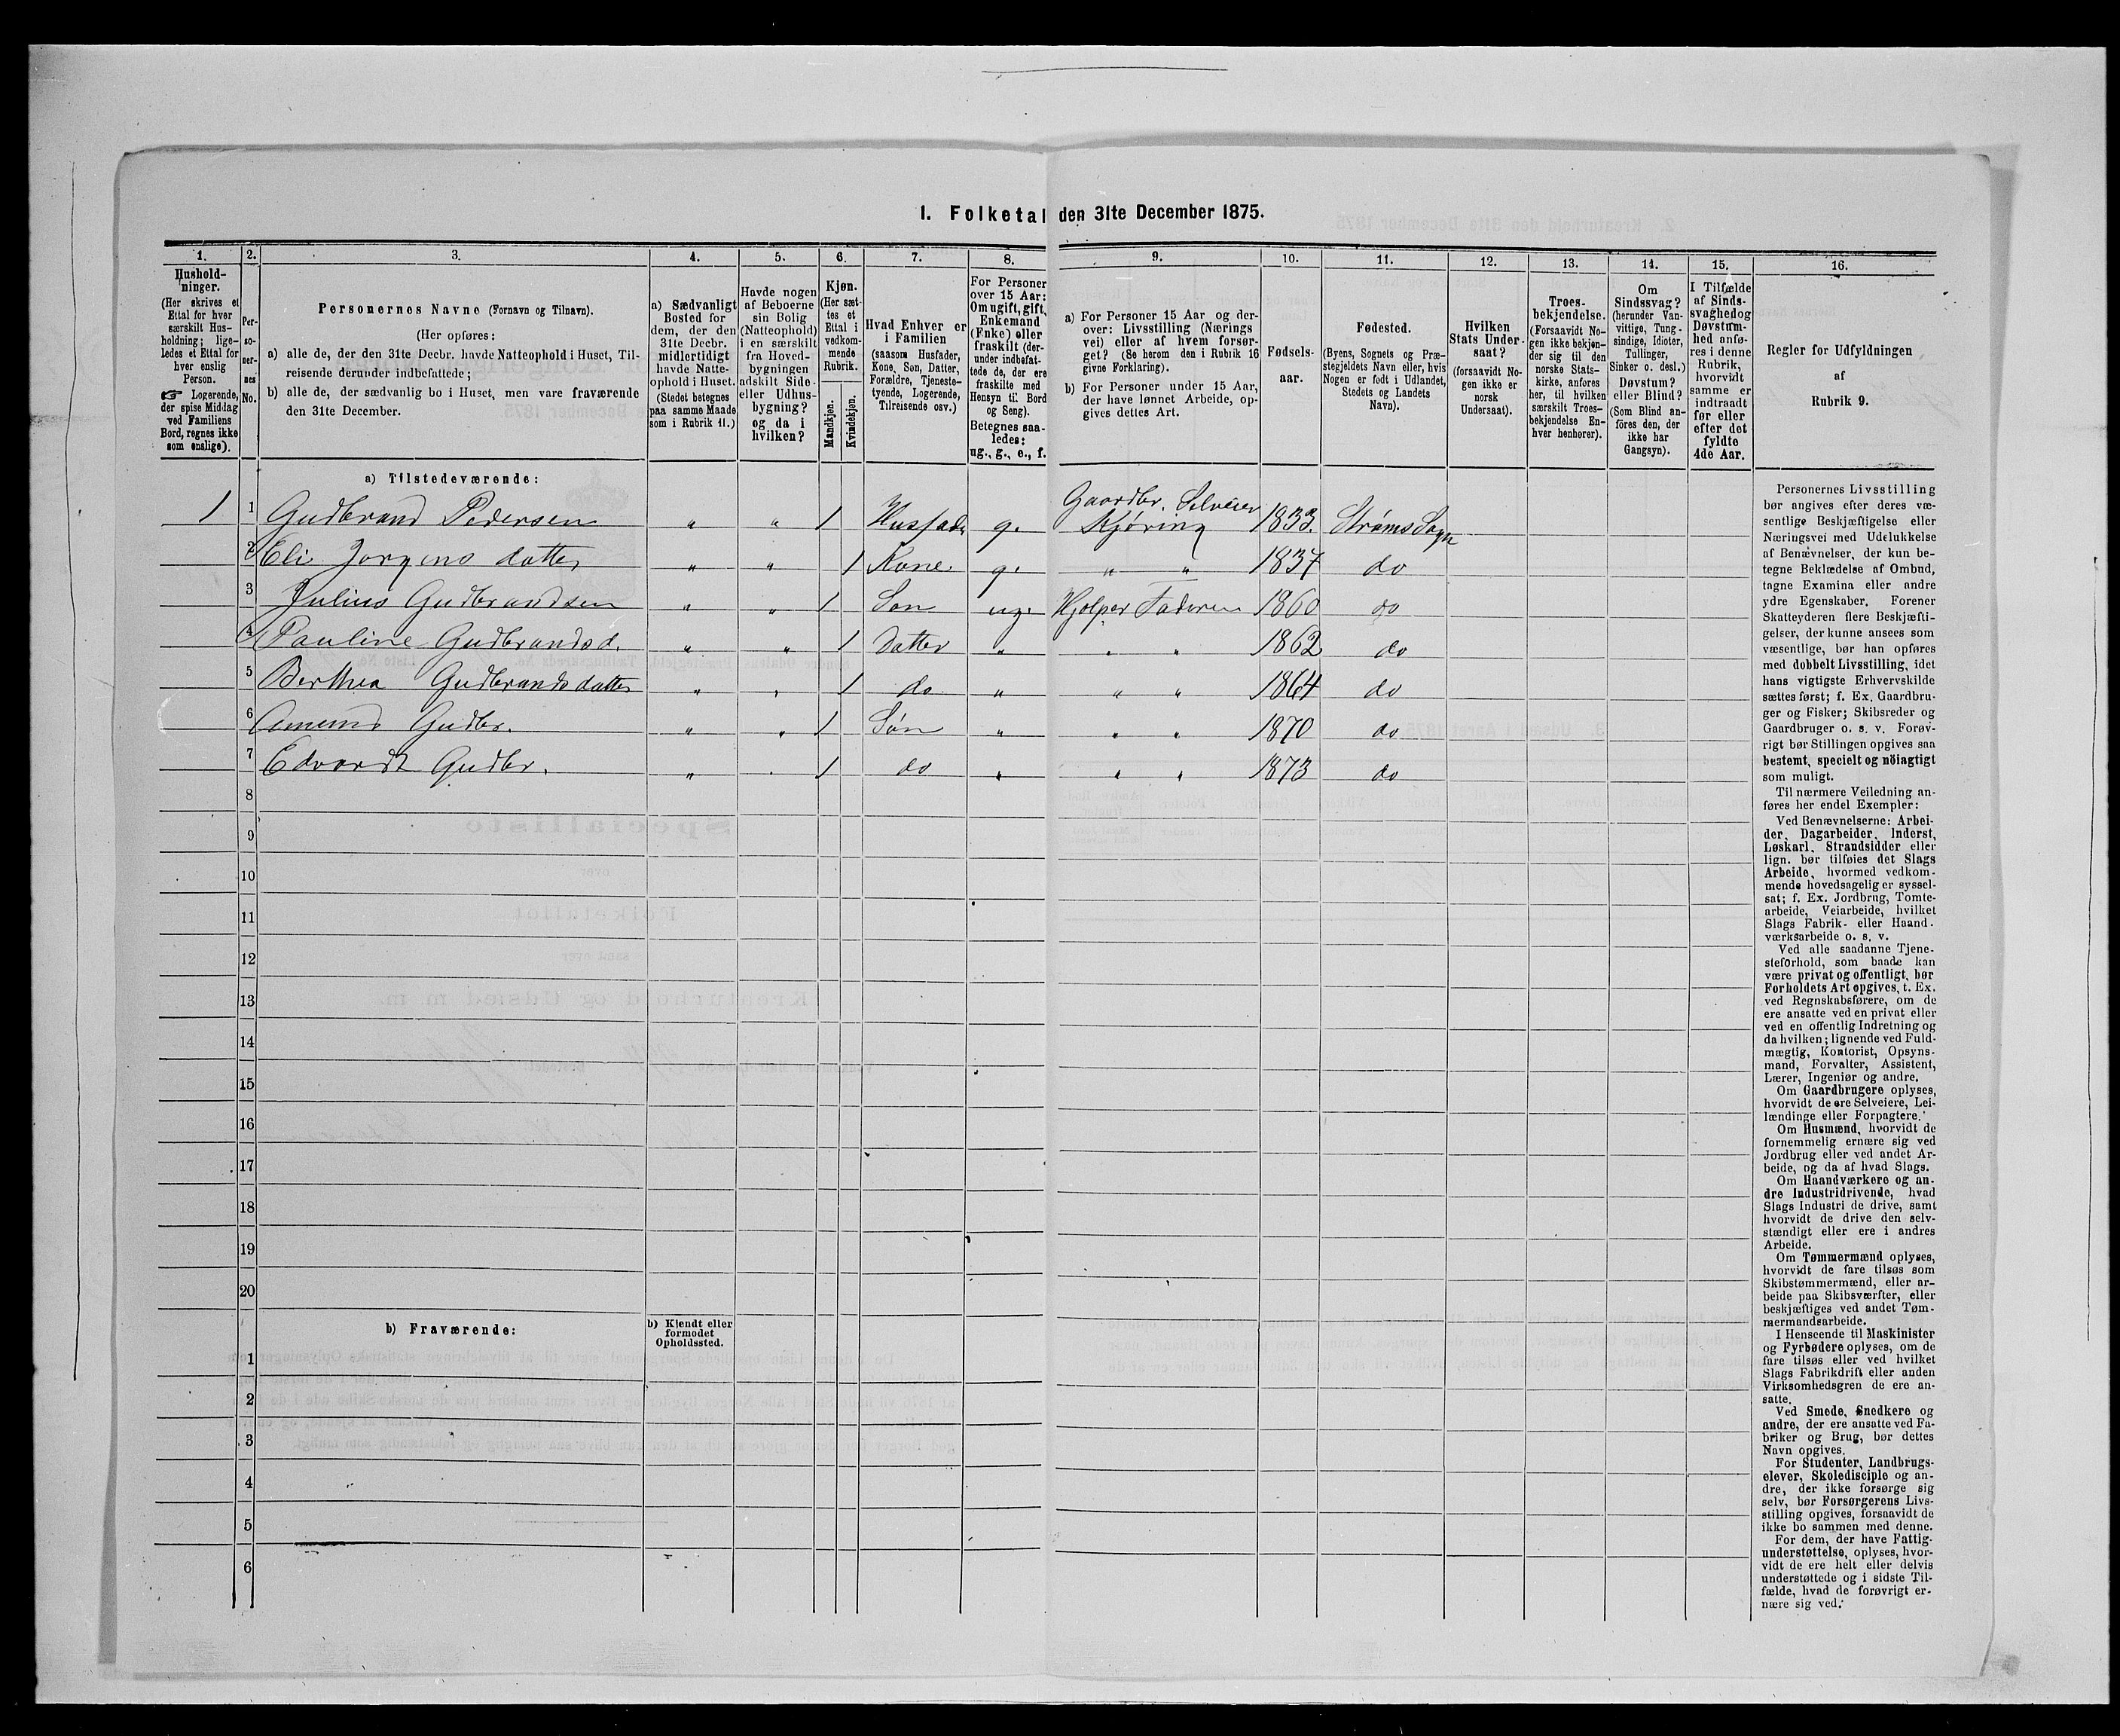 1. Folketal den 31te December 1875.
1. 2. 3. 4. 5. 6. 7. 8. 9. 10. 11. 12. 13. 14. 15. 16.
Hushold-
ninger.
(Her skrives et
Ettal for hver
særskilt Hus-
holdning; lige-
ledes et Ettal for
hver enslig
Person.
☞ Logerende,
der spise Middag
ved Familiens
Bord, regnes ikke
som enslige).
Per-
so-
ner-
nes
No.
Personernes Navne (Fornavn og Tilnavn).
(Her opføres:
a) alle de, der den 31te Decbr. havde Natteophold i Huset, Til-
reisende derunder indbefattede;
b) alle de, der sædvanlig bo i Huset, men vare fraværende
den 31te December.
a) Sædvanligt
Bosted for
dem, der den
31te Decbr.
midlertidigt
havde Natte-
ophold i Huset.
(Stedet betegnes
paa samme Maade
som i Rubrik 11.)
Havde nogen
af Beboerne
sin Bolig
(Natteophold)
i en særskilt
fra Hoved-
bygningen
adskilt Side-
eller Udhus-
bygning?
og da i
hvilken?
Kjøn.
(Her sæt-
tes et
Ettal i
vedkom-
mende
Rubrik.
Mandkjøn.
Kvindekjøn.
Hvad Enhver er
i Familien
(saasom Husfader,
Kone, Søn, Datter,
Forældre, Tjeneste-
tyende, Logerende,
Tilreisende osv.)
For Personer
over 15 Aar:
Om ugift, gift,
Enkemand
(Enke) eller
fraskilt (der-
under indbefat-
tede de, der ere
fraskilte med
Hensyn til Bord
og Seng).
Betegnes saa-
ledes:
ug., g., e., f.
a) For Personer 15 Aar og der-
over: Livsstilling (Nærings
vei) eller af hvem forsør-
get? (Se herom den i Rubrik 16
givne Forklaring).
b) For Personer under 15 Aar,
der have lønnet Arbeide, op-
gives dettes Art.
Fødsels-
aar.
Fødested.
(Byens, Sognets og Præ-
stegjeldets Navn eller, hvis
Nogen er født i Udlandet,
Stedets og Landets
Navn).
Hvilken
Stats Under-
saat?
(forsaavidt No-
gen ikke er
norsk
Undersaat).
Troes-
bekjendelse.
(Forsaavidt No-
gen ikke bekjen-
der sig til den
norske Stats-
kirke, anføres
her, til hvilken
særskilt Troes-
bekjendelse En-
hver henhører).
Om
Sindssvag?
(herunder Van-
vittige, Tung-
sindige, Idioter,
Tullinger,
Sinker o. desl.)
Døvstum?
eller Blind?
(Som Blind an-
föres den, der
ikke har
Gangsyn).
I Tilfælde
af Sinds-
svaghed og
Døvstum-
hed anfø-
res i denne
Rubrik,
hvorvidt
samme er
indtraadt
før eller
efter det
fyldte
4de Aar.
Regler for Udfyldningen
af
Rubrik 9.
a) Tilstedeværende:
Gaardbr. Selveier
1 1 Gudbrand Pedersen " " 1 Husfader g. Kjøring 1833. Strøms Sogn
2 Eli Jørgens datter " " 1 Kone. g. " " 1837 do
3 Julius Gudbrandsen " " 1 Søn ug. Hjelper Faderen 1860 do
4 Pauline Gudbrandsd. " " 1 Datter " " " 1862 do
5 Berthea Gudbrandsdatter " " 1 do " " " 1864 do
6 Amund Gudbr. " " 1 Søn " " " 1870 do
7 Edvardt Gudbr. " " 1 do " " " 1873 do
8
9
10
11
12
13
14
15
16
17
18
19
20
b) Fraværende:
b) Kjendt eller
formodet
Opholdssted.
1
2
3
4
5
6
Personernes Livsstilling
bør angives efter deres væ-
sentlige Beskjæftigelse eller
Næringsvei med Udelukkelse
af Benævnelser, der kun be-
tegne Beklædelse af Ombud,
tagne Examina eller andre
ydre Egenskaber. Forener
Skatteyderen flere Beskjæfti-
gelser, der kunne ansees som
væsentlige, bør han opføres
med dobbelt Livsstilling, idet
hans vigtigste Erhvervskilde
sættes først; f. Ex. Gaardbru-
ger og Fisker; Skibsreder og
Gaardbruger o. s. v. Forøv-
rigt bør Stillingen opgives saa
bestemt, specielt og nöiagtigt
som muligt.
Til nærmere Veiledning an-
føres her endel Exempler:
Ved Benævnelserne: Arbei-
der, Dagarbeider, Inderst,
Løskarl, Strandsidder eller
lign. bør tilføies det Slags
Arbeide, hvormed vedkom-
mende hovedsagelig er syssel-
sat; f. Ex. Jordbrug, Tomte-
arbeide, Veiarbeide, hvilket
Slags Fabrik- eller Haand-
værksarbeide o. s. v.
Ved alle saadanne Tjene-
steforhold, som baade kan
være privat og offentligt, bør
Forholdets Art opgives, t. Ex.
ved Regnskabsførere, om de
ere ansatte ved en privat eller
ved en offentlig Indretning og
da hvilken; lignende ved Fuld-
mægtig, Kontorist, Opsyns-
mand, Forvalter, Assistent,
Lærer, Ingeniør og andre.
Om Gaardbrugere oplyses,
hvorvidt de ere Selveiere, Lei-
lændinge eller Forpagtere.
Om Husmænd, hvorvidt de
fornemmelig ernære sig ved
Jordbrug eller ved andet Ar-
beide, og da af hvad Slags.
Om Haandværkere og an-
dre Industridrivende, hvad
Slags Industri de drive, samt
hvorvidt de drive den selv-
stændigt eller ere i andres
Arbeide.
Om Tømmermænd oplyses,
hvorvidt de fare tilsøs som
Skibstømmermænd, eller ar-
beide paa Skibsværfter, eller
beskjæftiges ved andet Tøm-
mermandsarbeide.
I Henseende til Maskinister
og Fyrbødere oplyses, om de
fare tilsøs eller ved hvilket
Slags Fabrikdrift eller anden
Virksomhedsgren de ere an-
satte.
Ved Smede, Snedkere og
andre, der ere ansatte ved Fa-
briker og Brug, bør dettes
Navn opgives.
For Studenter, Landbrugs-
elever, Skoledisciple og an-
dre, der ikke forsørge sig
selv, bør Forsørgerens Livs-
stilling opgives, forsaavidt de
ikke bo sammen med denne.
For dem, der have Fattig-
understøttelse, oplyses, hvor-
vidt de ere helt eller delvis
understøttede og i sidste Til-
fælde, hvad de forøvrigt er-
nære sig ved.